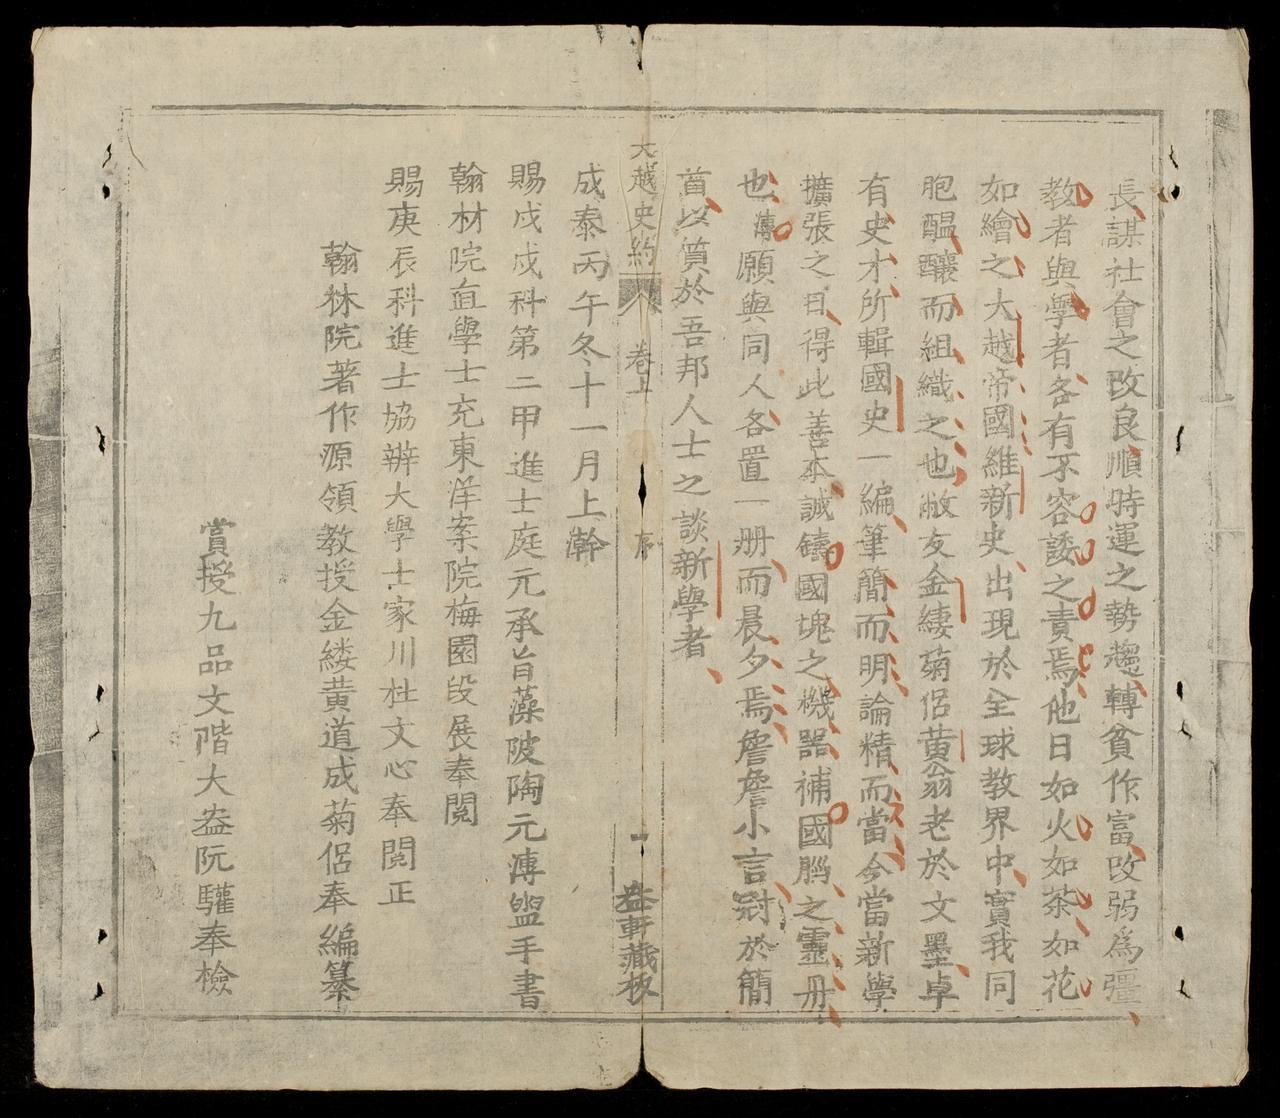 長謀社會之改良順時運之勢趨轉貧作富改弱爲彊
教者與學者各有不容諉之責焉他日如火如荼如花
如繪之大越帝國維新史出現於全球教界中實我同
胞醞釀而組織之也敝友金縷菊侶黄翁老於文墨卓
有史才所輯國史一編筆簡而明論精而當今當新學
擴張之日得此善本誠鑄國塊之機器補國腦之靈丹
也傳願與同人各置一册而晨夕焉詹詹小言冠於簡
首以質於吾邦人士之談新學者
大越史約 卷上 序 一 益軒藏板
成泰丙午冬十一月上澣
賜戊戌科第二甲進士庭元承旨藻陂陶元溥盥手書
翰林院直學士充東洋案院梅園段展奉閲
賜庚辰科進士協辦大學士家川杜文心奉閲正
翰林院著作源領教授金縷黄道成菊侶奉編纂
賞授九品文階大盎阮驩奉檢